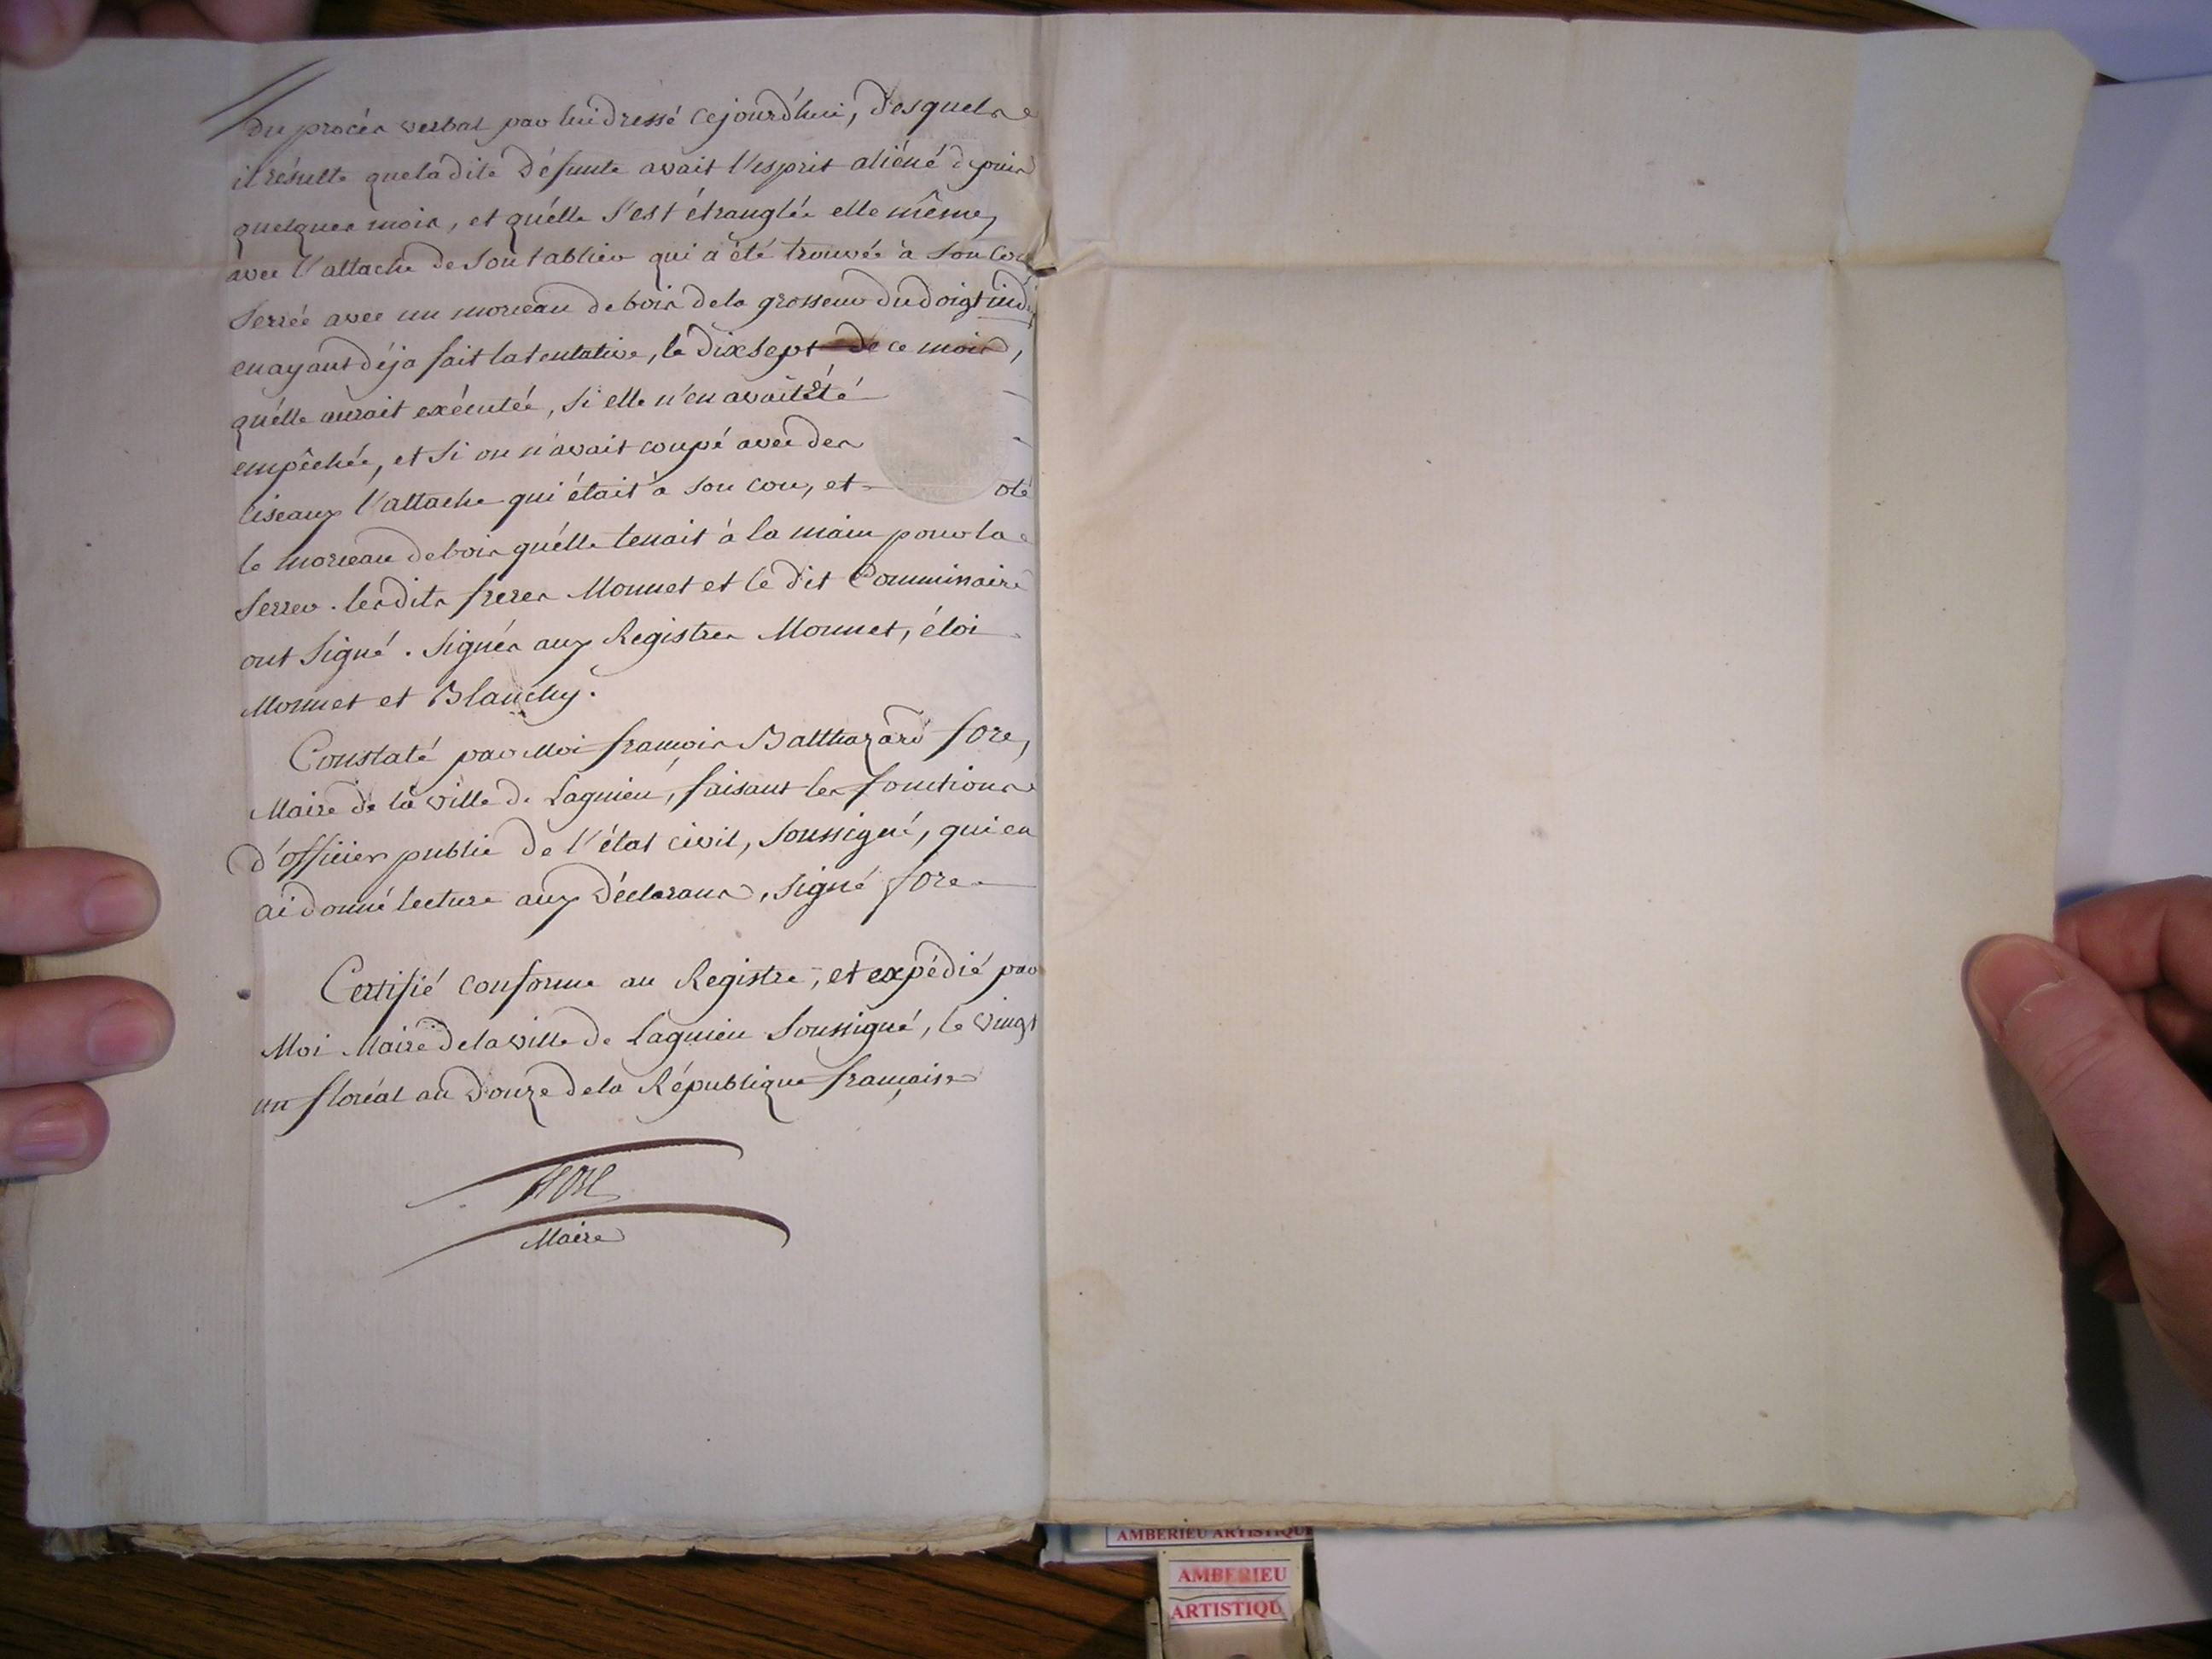 du procès verbal par lui dressé cejourd'hui, desquels
il résulte que ladite défunte avait l'esprit aliéné depuis
quelques mois, et qu'elle s'est étranglée elle même,
avec l'attache de son tablier qui a été trouvée à son cou
serrée avec un morceau de bois de la grosseur du doigt
en ayant déja fait la tentative, le dix sept de ce mois,
qu'elle aurait exécutée, si elle n'en avait été
empêchée, et si on n'avait coupé avec des
ciseaux l'attache qui était à son cou, et oté
le morceau de bois qu'elle tenait à la main pour la
serrer. lesdits freres Monnet et le dit Commissaire
ont signé. Signés aux Registres Monnet, éloi
Monnet et Blanchy.
Constaté par Moi françois Balthazard fore,
Maire de la ville de Lagnieu, faisant les fonctions
d'officier public de l'état civil, soussigné, qui en
ai donné lecture aux déclarans, signé fore
Certifié conforme au Registre, et expédié par
Moi Maire de la ville de Lagnieu soussigné, le vingt
un floréal an douze de la République française
fore
Maire
AMBERIEU ARTISTIQUE
AMBERIEU
ARTISTIQU